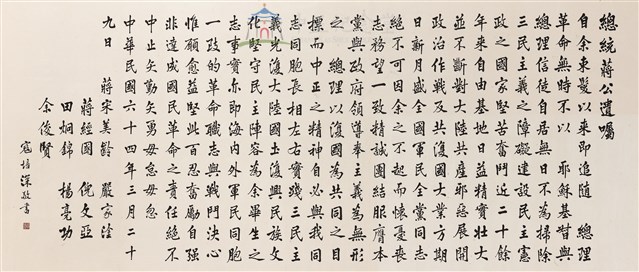 總統蔣公遺囑
自余束髮以來即追隨 總理
革命無時不以 耶穌基督與
總理信徒自居無日不為掃除
三民主義之障礙建設民主憲
政之國家堅苦奮鬥近二十餘
年來自由基地日益精實壯大
並不斷對大陸共產邪惡展開
政治作戰反共復國大業方期
日新月盛全國軍民全黨同志
絕不可因余之不起而懷憂喪
志務望一致精誠團結服膺本
黨與政府領導奉主義為無形
之 總理以復國為共同之目
標而中正之精神自必與我同
志同胞長相左右實踐三民主
義光復大陸國土復興民族文
化堅守民主陣容為余畢生之
志事實亦即海內外軍民同胞
一致的革命職志與戰鬥決心
惟願愈益堅此百忍奮勵自強
非達成國民革命之責任絕不
中止矢勤矢勇毋怠毋忽
中華民國六十四年三月二十
九日
蔣宋美齡 嚴家淦
蔣經國 倪文亞
田炯錦 楊亮功
余俊賢
寇培深敬書